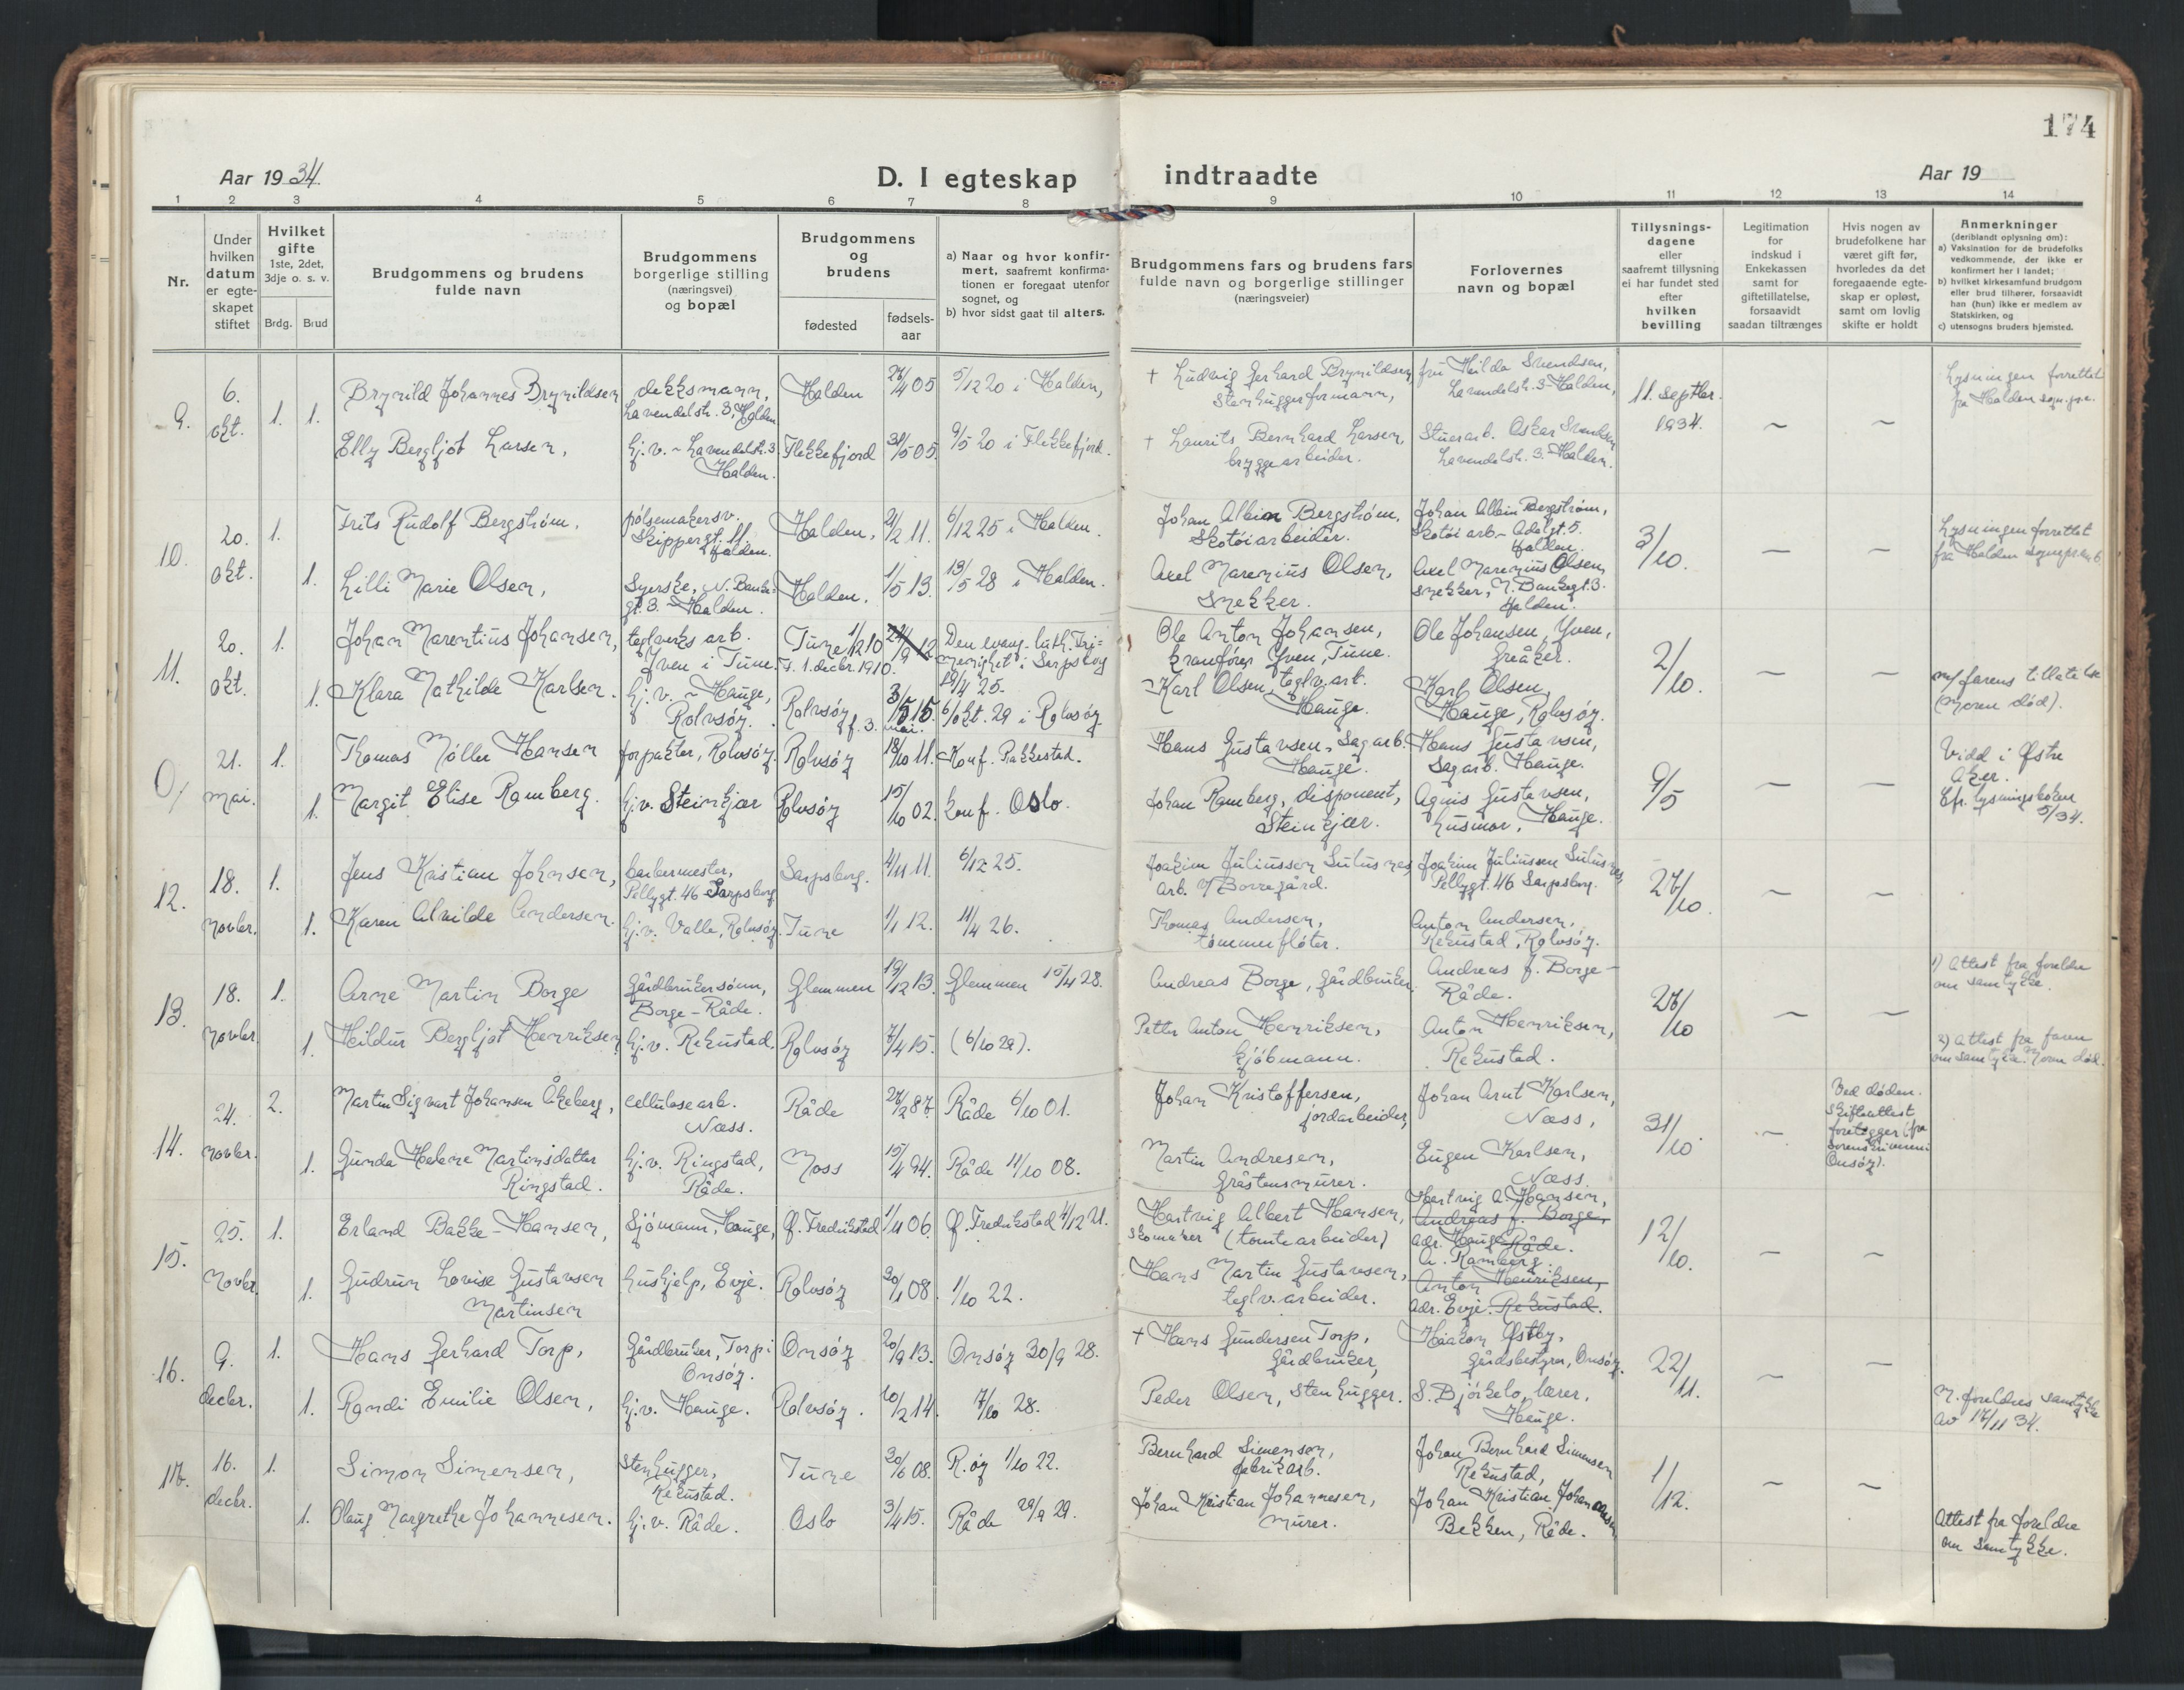 174
Aar 1934.
D. I egteskap indtraadte
Aar 19
1 2 3 4 5 6 7 8 9 10 11 12 13 14
Nr.
Under hvilken datum er egteskapet stiftet
Hvilket gifte 1ste, 2det, 3dje o. s. v.
Brdg. Brud
Brudgommens og brudens fulde navn
Brudgommens borgerlige stilling (næringsvei) og bopæl
Brudgommens og brudens
fødested
fødsels-aar
a) Naar og hvor konfirmert, saafremt konfirmationen er foregaat utenfor sognet, og
b) hvor sidst gaat til alters.
Brudgommens fars og brudens fars fulde navn og borgerlige stillinger (næringsveier)
Forlovernes navn og bopæl
Tillysningsdagene eller saafremt tillysning ei har fundet sted efter hvilken bevilling
Legitimation for indskud i Enkekassen samt for giftetillatelse, forsaavidt saadan tiltrænges
Hvis nogen av brudefolkene har været gift før, hvorledes da det foregaaende egteskap er opløst, samt om lovlig skifte er holdt
Anmerkninger (deriblandt oplysning om):
a) Vaksination for de brudefolks vedkommende, der ikke er konfirmert her i landet;
b) hvilket kirkesamfund brudgom eller brud tilhører, forsaavidt han (hun) ikke er medlem av Statskirken, og
c) utensogns bruders hjemsted.
9. 6. okt. 1. 1.
Brynild Johannes Brynildsen dekksmann, Lavendelstr. 3, Halden Halden 27/4 05 5/12 20 i Halden,
† Ludvig Gerhard Brynildsen, Stenhuggerformann, fru Hilda Svendsen, Lavendelstr. 3 Halden, 11. septbr. 1934. ~ ~ Lysningen forrettet fra Halden sogn.pr.e.
Elly Bergljot Larsen, hj.v. ~ Lavendelstr. 3 Halden. Flekkefjord 31/5 05. 9/5 20 i Flekkefjord.
† Laurits Bernhard Larsen, bryggearbeider. Stuerarb. Oskar Svendsen Lavendelstr. 3. Halden.
10. 20. okt. 1.
Frits Rudolf Bergstrøm. pølsemakersv. Skippergt. 11. Halden. Halden. 21/2 11. 6/12 25 i Halden.
Johan Albin Bergstrøm. Skotøiarbeider. Johan Albin Bergstrøm, Skotøiarb. ~ Adelgt. 5. Halden. 3/10. — — Lysningen forrettet fra Halden
1. Lilli Marie Olsen, Syerske, N. Bankegt. 3. ~ Halden. Halden. 1/5 13. 13/5 28 i Halden.
Axel Marenius Olsen, Snekker. Axel Marenius Olsen, snekker, N. Bankegt. 3. Halden.
11. 20. okt. 1.
Johan Marentius Johansen, teglverks arb. Yven i Tune. Tune 1/12 10 F. 1. decbr. 1910. Den evang.-luth. Frimenighet i Sarpsborg 19/4 25.
Ole Anton Johansen, kranfører Yven, Tune. Ole Johansen, Yven, Greåker. 2/10. — —
1. Klara Mathilde Karlsen. hj.v. ~ Hauge, Rolvsøy. Rolvsøy f. 3. mai. 3/5 15. 6/okt. 29 i Rolvsøy
Karl Olsen, teglv.arb. Hauge. Karl Olsen, Hauge, Rolvsøy. m/ farens tillatelse (Moren død).
0/ 21. mai. 1.
Thomas Møller Hansen forpakter, Rolvsøy. Rolvsøy 18/10 11. Konf. Rakkestad.
Hans Gustavsen, Sagarb. Hauge. Hans Gustavsen, Sagarb. Hauge. 9/5 — — Vidd i Østre Aker. Cfr. lysningsboken 5/34.
1. Margit Elise Ramberg. hj.v. Steinkjær Rolvsøy 15/10 02. konf. Oslo.
Johan Ramberg, disponent, Steinkjær. Agnis Gustavsen, husmor, Hauge.
12. 18. novbr. 1.
Jens Kristian Johnsen, barbermester, Pellygt. 46 Sarpsborg Sarpsborg. 4/11 11. 6/12 25.
Joakim Juliussen Sulusnes, arb. v/ Borregård. Joakim Juliussen Sulusnes, Pellygt. 46 Sarpsborg. 27/10. ~ ~
1. Karen Alvilde Andersen. hj.v. Valle, Rolvsøy. Tune 1/1 12. 11/4 26.
Thomas Andersen, tømmerfløter. Anton Andersen, Rekustad, Rolvsøy.
13. 18. novbr. 1.
Arne Martin Borge Gårdbrukersønn, Borge – Råde. Glemmen 19/12 13. Glemmen 15/4 28.
Andreas Borge, Gårdbruker. Andreas f. Borge – Råde. 27/10 ~ ~ 1) Attest fra foreldre om samtykke.
1. Hildur Bergljot Henriksen hj.v. Rekustad. Rolvsøy 7/4 15. (6/10 29).
Petter Anton Henriksen, kjøbmann. Anton Henriksen, Rekustad. 2) Attest fra faren om samtykke. Moren død.
14. 24. novbr. 2.
Martin Sigvart Johansen Åkeberg, cellulosearb. Næss. Råde 27/2 87. Råde 6/10 01.
Johan Kristoffersen, jordarbeider, Johan Arnt Karlsen, Næss, 31/10 ~ Ved døden. Skifteattest foreligger (fra Onsøy).
1. Gunda Helene Martinsdatter Ringstad. hj.v. Ringstad, Råde. Moss 15/1 94. Råde 11/10 08.
Martin Andresen, gråstensmurer. Eugen Karlsen, Næss.
15. 25. novbr. 1.
Erland Bakke-Hansen, Sjømann, Hauge, Gl. Fredrikstad 1/11 06. Gl. Fredrikstad 4/12 21.
Hartvig Albert Hansen, skomaker (tomtearbeider) Hartvig A. Hansen, Andreas f. Borge, adr. Hauge Råde. 12/10. — ~
1. Gudrun Lovise Gustavsen Martinsen hushjelp, Evje. Rolvsøy 30/1 08. 1/10 22.
Hans Martin Gustavsen, teglv.arbeider. A. Ramberg. Anton Henriksen, adr. Evje. Rekustad.
16. 9. decbr. 1.
Hans Gerhard Torp, Gårdbruker, Torp i Onsøy. Onsøy 20/9 13. Onsøy 30/9 28.
† Hans Gundersen Torp, Gårdbruker, Haakon Østby, gårdsbestyrer, Onsøy. 22/11. ~ —
1. Randi Emilie Olsen, hj.v. Hauge. Rolvsøy. 10/2 14. 7/10 28.
Peder Olsen, stenhugger. S. Bjørkelo, lærer, Hauge. M. foreldres samtykke av 17/11 34.
17. 16. decbr. 1.
Simon Simensen, stenhugger, Rekustad. Tune 30/6 08. R.øy 1/10 22.
Bernhard Simensen, fabrikarb. Johan Bernhard Simensen Rekustad, 1/12. ~ ~
1. Olaug Margrethe Johannesen. hj.v. Råde. Oslo 3/4 15. Råde 29/9 29.
Johan Kristian Johannesen, murer. Johan Kristian Johannesen, Bekken, Råde. Attest fra foreldre om samtykke.